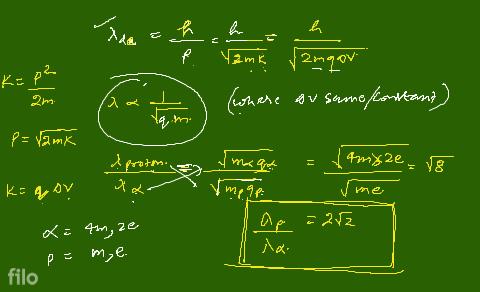 λ_de = h/p = h/√2mK = h/√2mqΔV
K = p²/2m
λ ∝ 1/√q.m (where ΔV same/constant)
P = √2mK
λ proton/λα = √mα qα/√mp qp = √4m×2e/√me = √8
K = q ΔV
α = 4m, 2e
p = m, e.
λp/λα = 2√2
filo